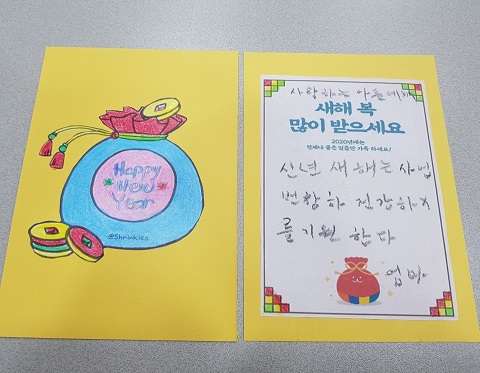 Happy
New
Year
@Shrinkles
사랑하는 아들에게
새해 복
많이 받으세요
2020년에는
언제나 좋은 일들만 가득 하세요!
신년 새해는 사업
번창하 건강하기
를 기원 합다